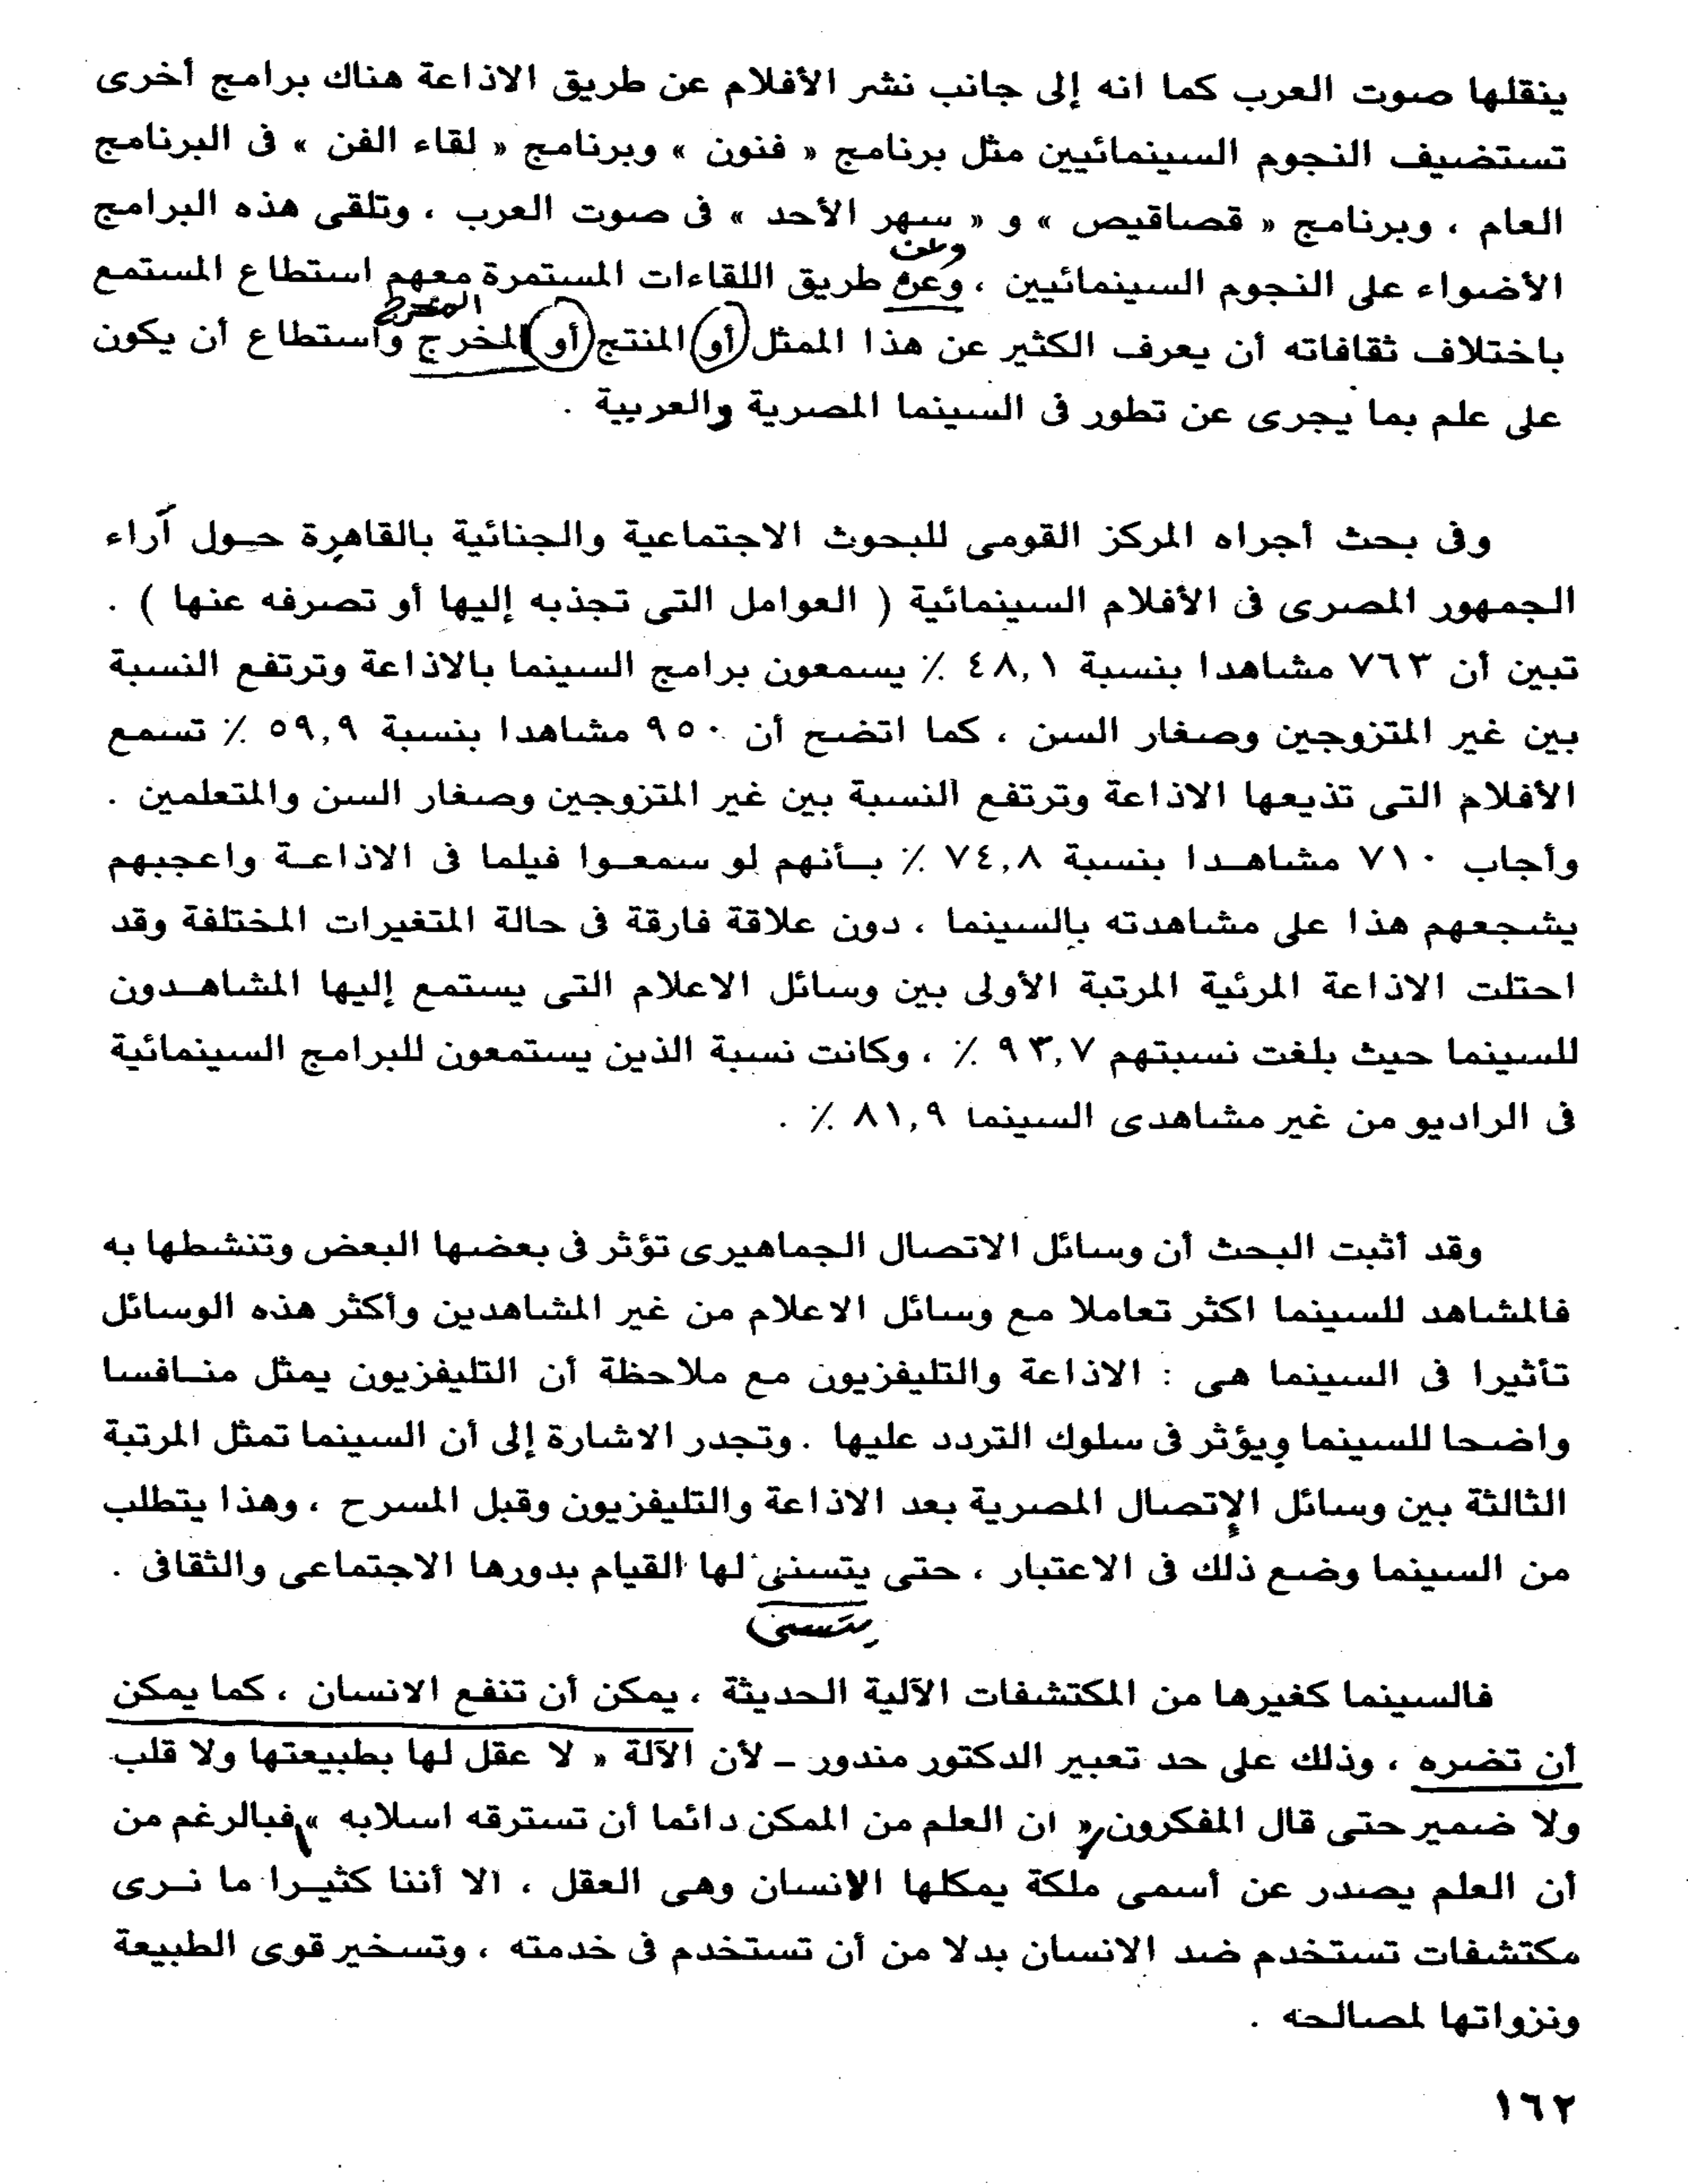 ينقلها صوت العرب كما انه إلى جانب نشر الأفلام عن طريق الاذاعة هناك برامج أخرى
تستضيف النجوم السينمائيين مثل برنامج « فنون » وبرنامج « لقاء الفن » فى البرنامج
العام ، وبرنامج « قصاقيص » و « سهر الأحد » فى صوت العرب ، وتلقى هذه البرامج
وعن
الأضواء على النجوم السينمائيين ، وعن طريق اللقاءات المستمرة معهم استطاع المستمع
المخرج
باختلاف ثقافاته أن يعرف الكثير عن هذا الممثل أو المنتج أو المخرج وأستطاع أن يكون
على علم بما يجرى عن تطور فى السينما المصرية والعربية .
وفى بحث أجراه المركز القومى للبحوث الاجتماعية والجنائية بالقاهرة حول آراء
الجمهور المصرى فى الأفلام السينمائية ( العوامل التى تجذبه إليها أو تصرفه عنها ) .
تبين أن ٧٦٣ مشاهدا بنسبة ٤٨,١ ٪ يسمعون برامج السينما بالاذاعة وترتفع النسبة
بين غير المتزوجين وصغار السن ، كما اتضح أن ٩٥٠ مشاهدا بنسبة ٥٩,٩ ٪ تسمع
الأفلام التى تذيعها الاذاعة وترتفع النسبة بين غير المتزوجين وصغار السن والمتعلمين .
وأجاب ٧١٠ مشاهدا بنسبة ٧٤,٨ ٪ بأنهم لو سمعوا فيلما فى الاذاعة واعجبهم
يشجعهم هذا على مشاهدته بالسينما ، دون علاقة فارقة فى حالة المتغيرات المختلفة وقد
احتلت الاذاعة المرئية المرتبة الأولى بين وسائل الاعلام التى يستمع إليها المشاهدون
للسينما حيث بلغت نسبتهم ٩٣,٧ ٪ ، وكانت نسبة الذين يستمعون للبرامج السينمائية
فى الراديو من غير مشاهدى السينما ٨١,٩ ٪ .
وقد أثبت البحث أن وسائل الاتصال الجماهيرى تؤثر فى بعضها البعض وتنشطها به
فالمشاهد للسينما اكثر تعاملا مع وسائل الاعلام من غير المشاهدين وأكثر هذه الوسائل
تأثيرا فى السينما هى : الاذاعة والتليفزيون مع ملاحظة أن التليفزيون يمثل منافسا
واضحا للسينما ويؤثر فى سلوك التردد عليها . وتجدر الاشارة إلى أن السينما تمثل المرتبة
الثالثة بين وسائل الإتصال المصرية بعد الاذاعة والتليفزيون وقبل المسرح ، وهذا يتطلب
من السينما وضع ذلك فى الاعتبار ، حتى يتسنى لها القيام بدورها الاجتماعى والثقافى .
يتسنى
فالسينما كغيرها من المكتشفات الآلية الحديثة ، يمكن أن تنفع الانسان ، كما يمكن
أن تضره ، وذلك على حد تعبير الدكتور مندور ـ لأن الآلة « لا عقل لها بطبيعتها ولا قلب
ولا ضمير حتى قال المفكرون « ان العلم من الممكن دائما أن تسترقه اسلابه » فبالرغم من
أن العلم يصدر عن أسمى ملكة يمكلها الإنسان وهى العقل ، الا أننا كثيرا ما نرى
مكتشفات تستخدم ضد الانسان بدلا من أن تستخدم فى خدمته ، وتسخير قوى الطبيعة
ونزواتها لمصالحه .
١٦٢